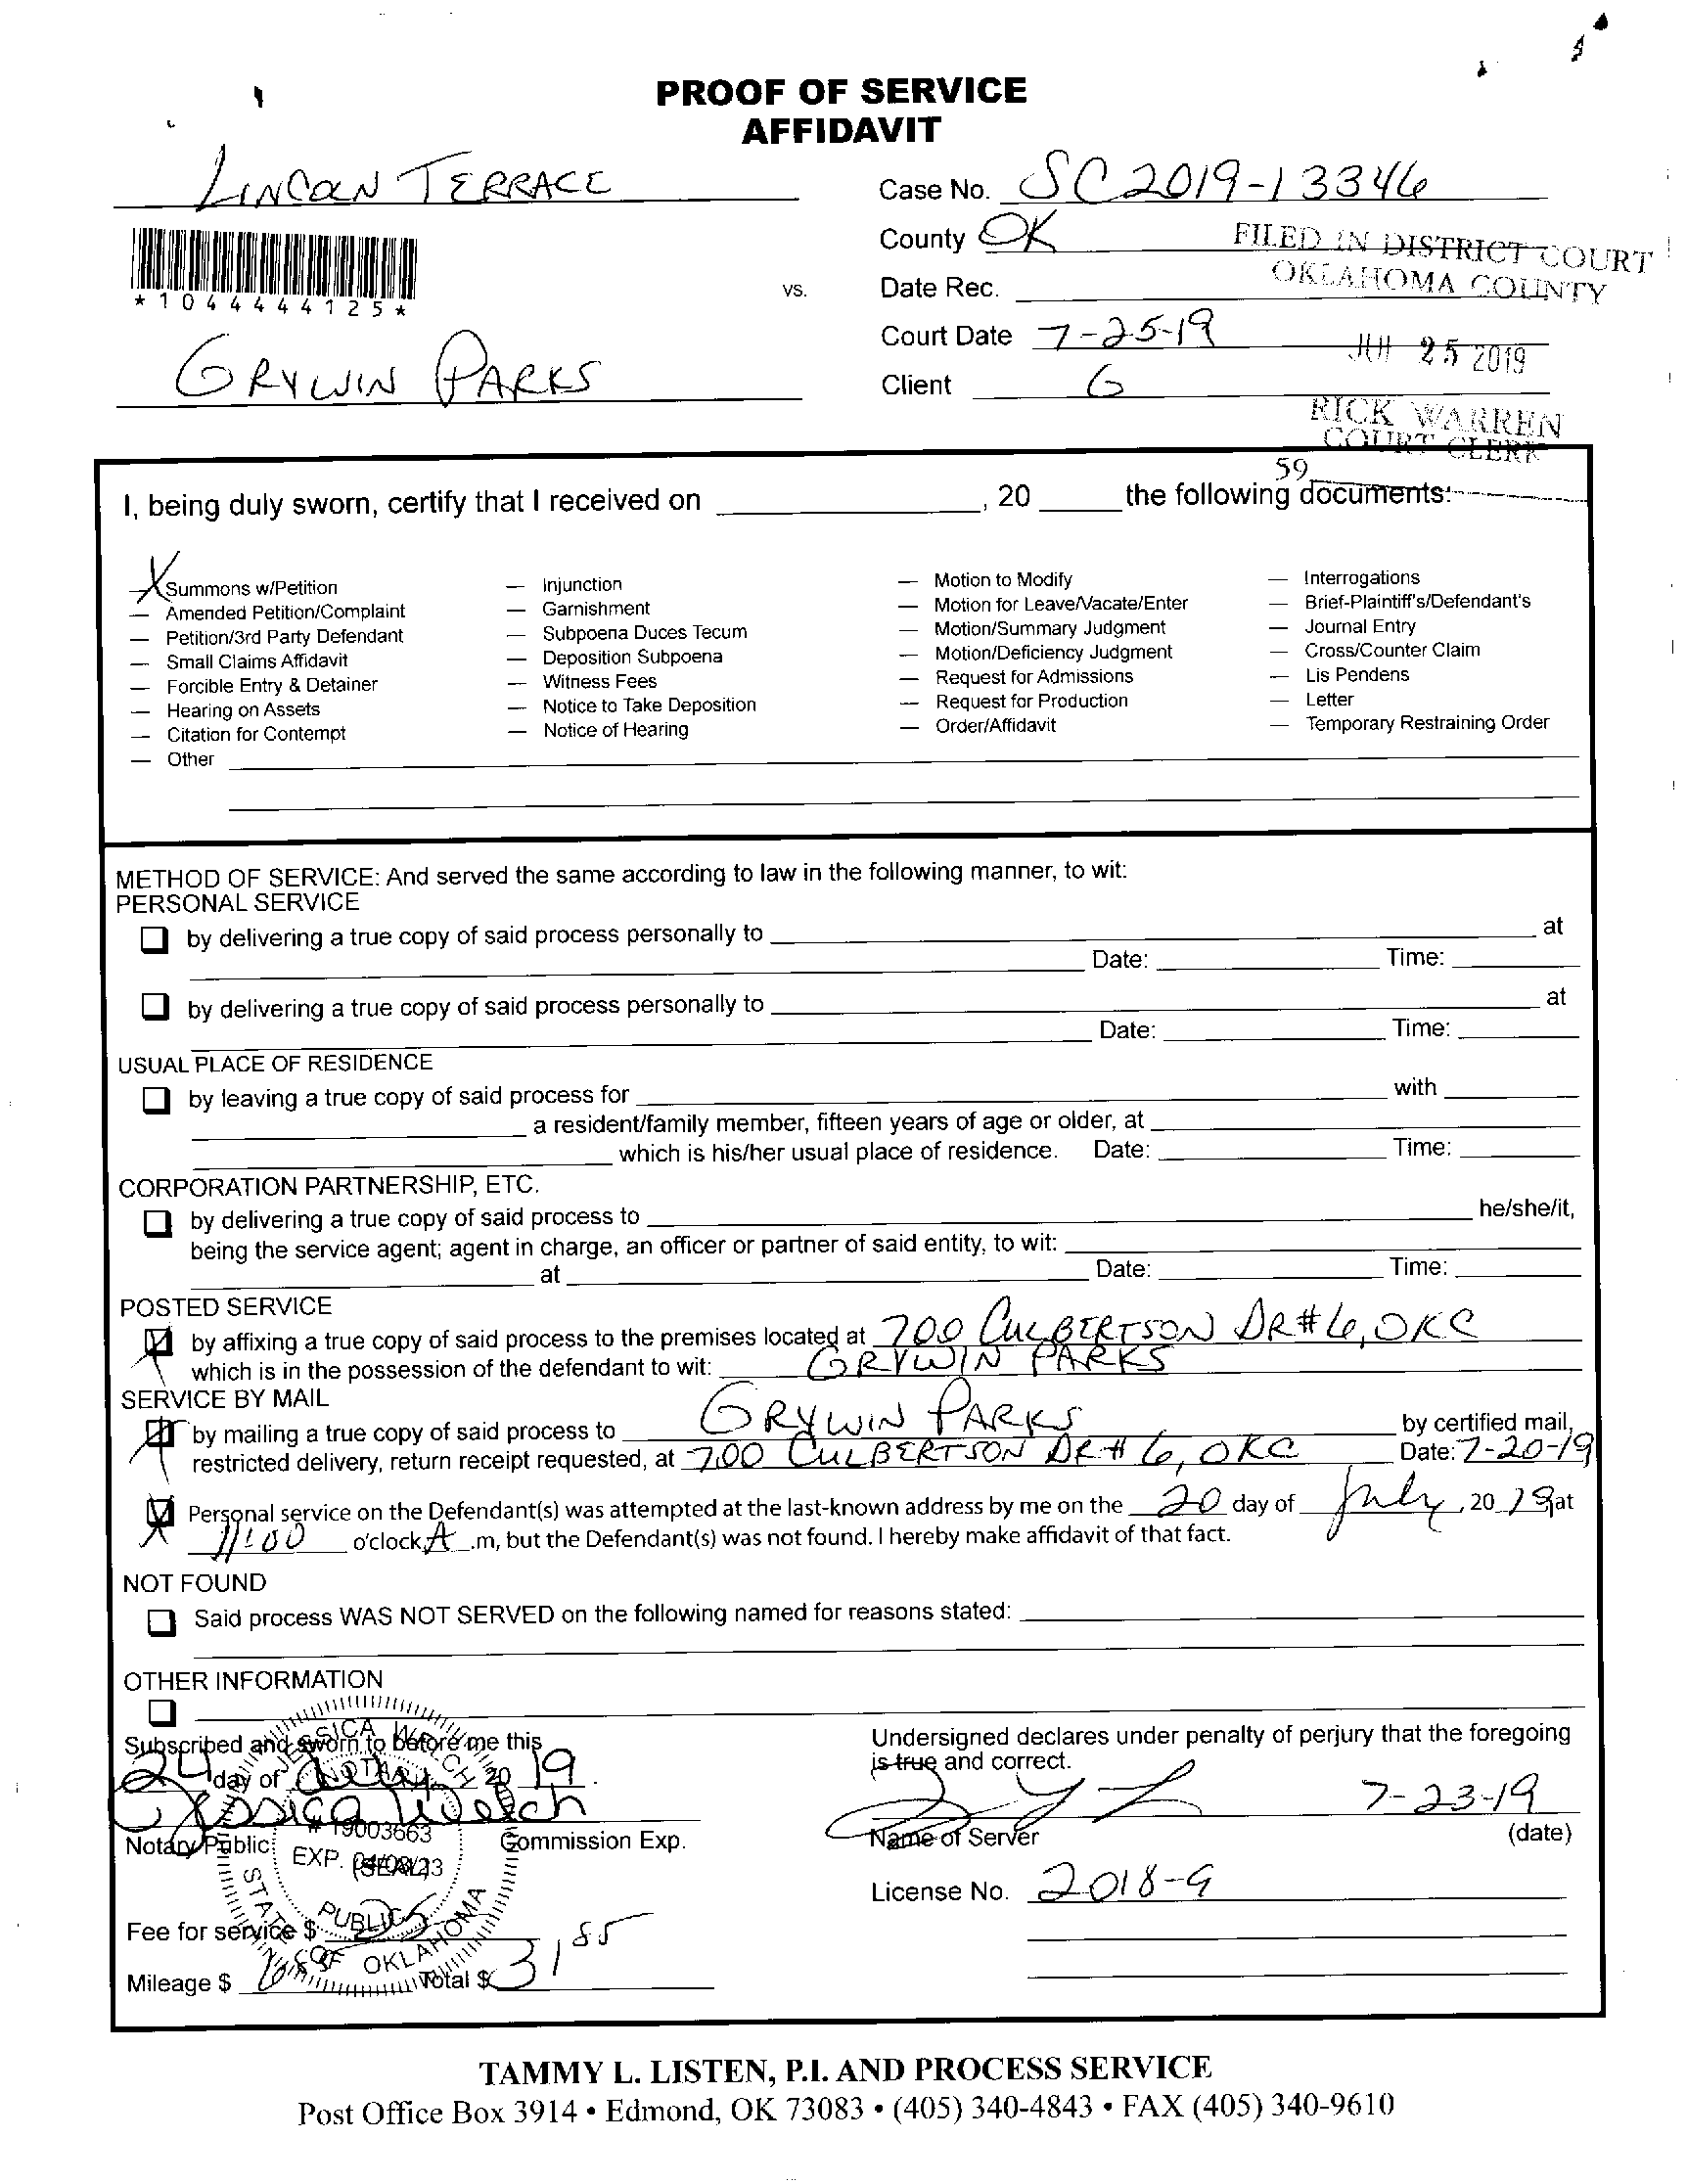 PROOF OF SERVICE
AFFIDAVIT
LINCOLN TERRACE
Case No. SC2019-13346
County OK
FILED IN DISTRICT COURT
OKLAHOMA COUNTY
*1044444125*
vs.
Date Rec.
Court Date 7-25-19
25 2019
GRYWIN PARKS
Client G
RICK WARREN
COURT CLERK
59
I, being duly sworn, certify that I received on , 20 the following documents:
X Summons w/Petition
— Amended Petition/Complaint
— Petition/3rd Party Defendant
— Small Claims Affidavit
— Forcible Entry & Detainer
— Hearing on Assets
— Citation for Contempt
— Other
— Injunction
— Garnishment
— Subpoena Duces Tecum
— Deposition Subpoena
— Witness Fees
— Notice to Take Deposition
— Notice of Hearing
— Motion to Modify
— Motion for Leave/Vacate/Enter
— Motion/Summary Judgment
— Motion/Deficiency Judgment
— Request for Admissions
— Request for Production
— Order/Affidavit
— Interrogations
— Brief-Plaintiff's/Defendant's
— Journal Entry
— Cross/Counter Claim
— Lis Pendens
— Letter
— Temporary Restraining Order
METHOD OF SERVICE: And served the same according to law in the following manner, to wit:
PERSONAL SERVICE
by delivering a true copy of said process personally to at
Date: Time:
by delivering a true copy of said process personally to at
Date: Time:
USUAL PLACE OF RESIDENCE
by leaving a true copy of said process for with
a resident/family member, fifteen years of age or older, at
which is his/her usual place of residence. Date: Time:
CORPORATION PARTNERSHIP, ETC.
by delivering a true copy of said process to he/she/it,
being the service agent; agent in charge, an officer or partner of said entity, to wit:
at Date: Time:
POSTED SERVICE
by affixing a true copy of said process to the premises located at 700 CULBERTSON DR #6, OKC
which is in the possession of the defendant to wit: GRYWIN PARKS
SERVICE BY MAIL
by mailing a true copy of said process to GRYWIN PARKS by certified mail,
restricted delivery, return receipt requested, at 700 CULBERTSON DR # 6, OKC Date: 7-20-19
Personal service on the Defendant(s) was attempted at the last-known address by me on the 20 day of July, 2019 at
11:00 o'clock A .m, but the Defendant(s) was not found. I hereby make affidavit of that fact.
NOT FOUND
Said process WAS NOT SERVED on the following named for reasons stated:
OTHER INFORMATION
Subscribed and sworn to before me this
24 day of July 20 19
Jessica Welch
Notary Public (SEAL) Commission Exp.
JESSICA WELCH
NOTARY
# 19003663
EXP. 04/08/23
PUBLIC
STATE OF OKLAHOMA
Fee for service $ 25
Mileage $ 6.85 Total $ 31.85
Undersigned declares under penalty of perjury that the foregoing
is true and correct.
7-23-19
Name of Server (date)
License No. 2018-9
TAMMY L. LISTEN, P.I. AND PROCESS SERVICE
Post Office Box 3914 • Edmond, OK 73083 • (405) 340-4843 • FAX (405) 340-9610